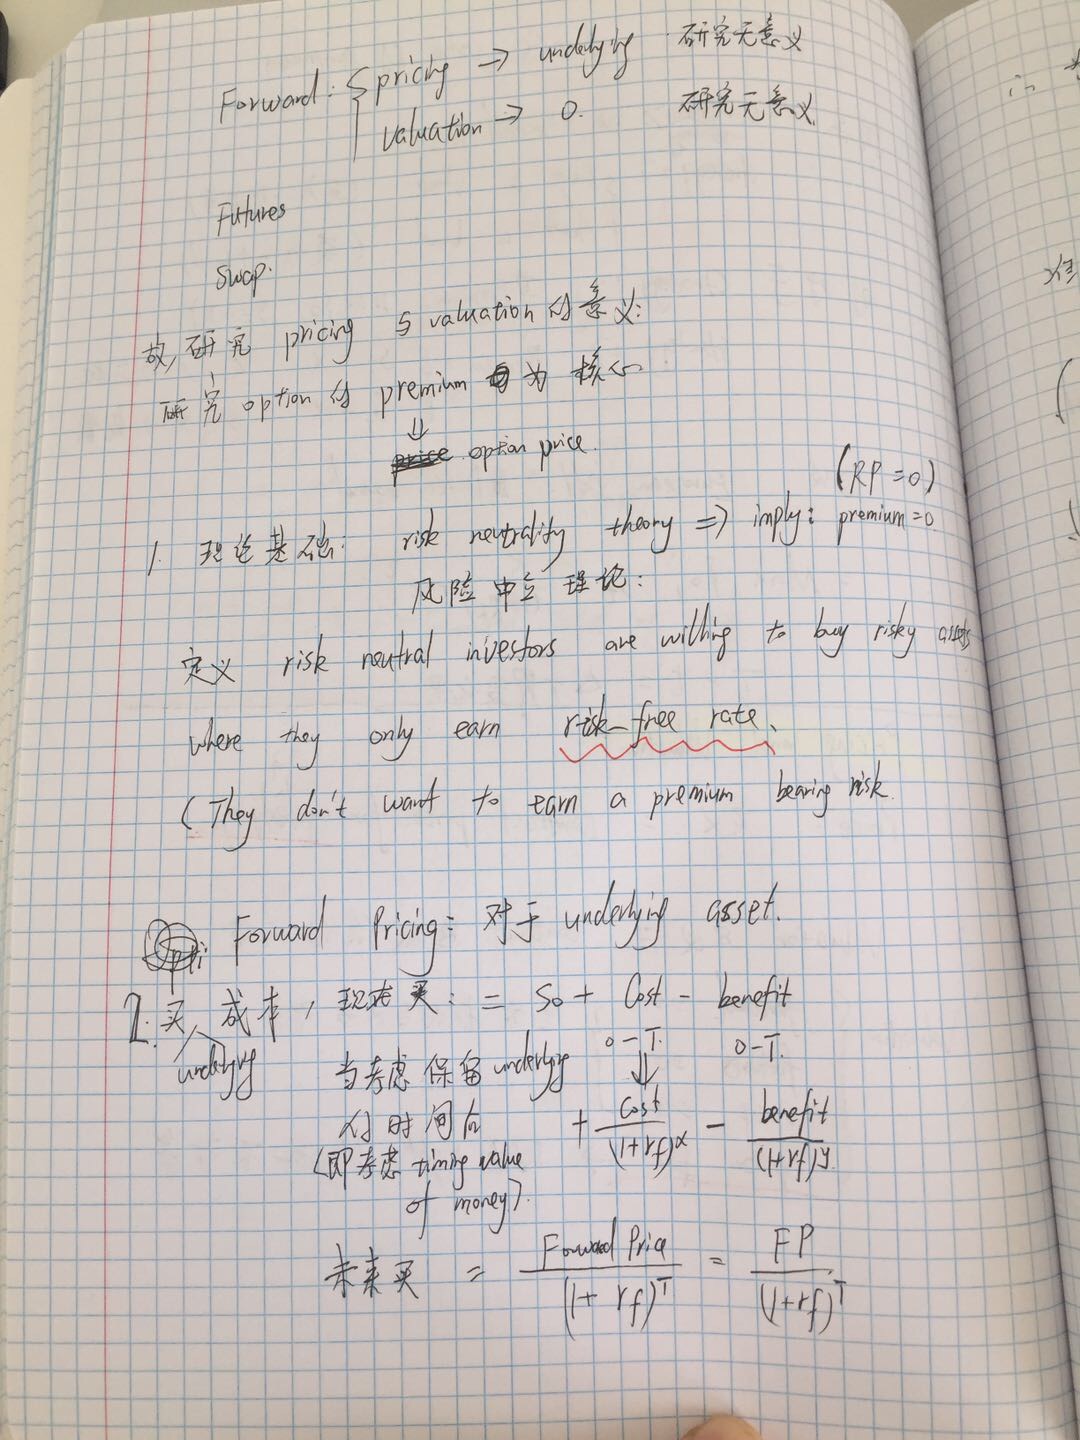 Forward: { pricing → underlying 研究无意义
valuation → 0. 研究无意义
Futures
Swap.
故,研究 pricing 与 valuation 的意义:
研究 option 的 premium 为 核心
⇓
option price.
(RP=0)
1. 理论基础: risk neutrality theory => imply: premium=0
风险中立理论:
定义 risk neutral investors are willing to buy risky assets
where they only earn risk-free rate.
(They don't want to earn a premium bearing risk.
Forward Pricing: 对于 underlying asset.
2. 买 成本, 现在买: = S0 + Cost - benefit
underlying
0-T. 0-T.
当考虑保留 underlying
的时间后 + Cost/(1+rf)^x - benefit/(1+rf)^y
(即考虑 timing value
of money).
未来买 = Forward Price/(1+rf)^T = FP/(1+rf)^T